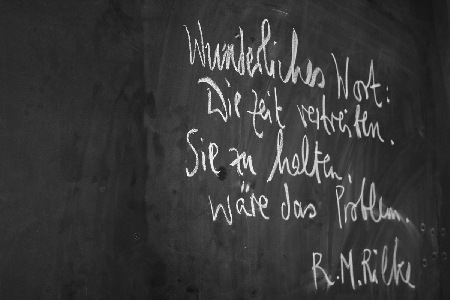 Wunderliches Wort:
Die Zeit vertreiben.
Sie zu halten,
wäre das Problem.
R.M.Rilke